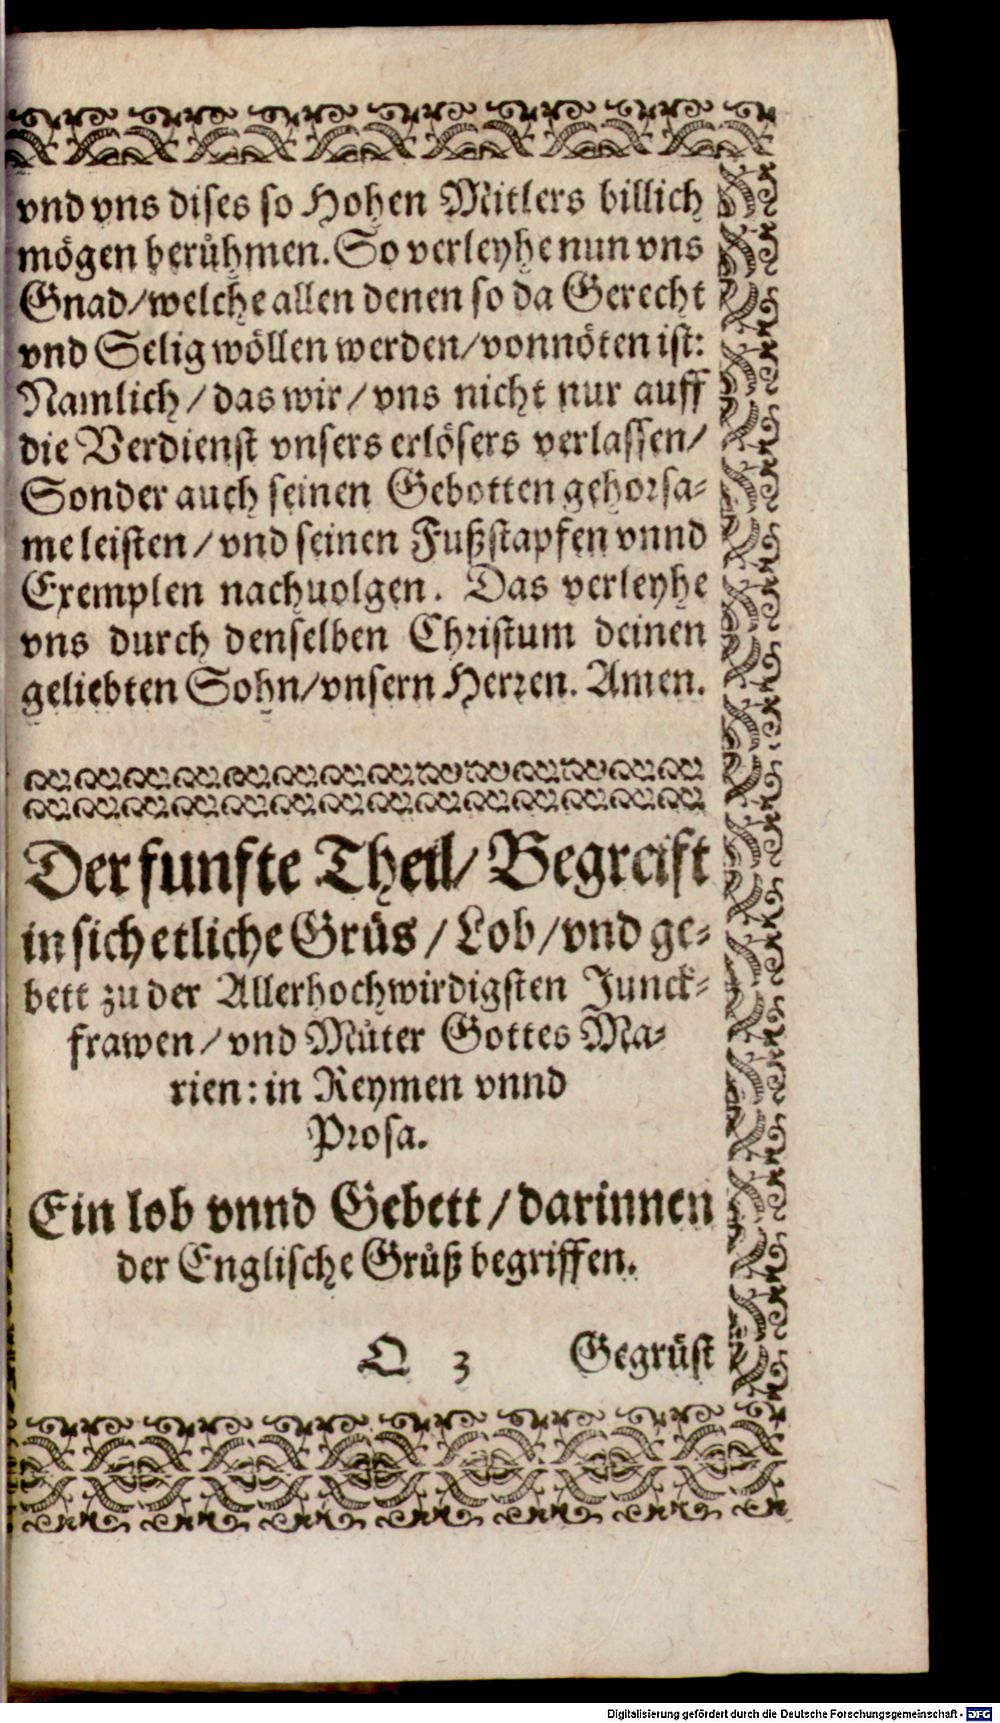 vnd vns dises so Hohen Mitlers billich
mögen berůhmen. So verleyhe nun vns
Gnad/welche allen denen so da Gerecht
vnd Selig wöllen werden/vonnöten ist:
Namlich/das wir/vns nicht nur auff
die Verdienst vnsers erlösers verlassen/
Sonder auch seinen Gebotten gehorsa-
me leisten/vnd seinen Fußstapfen vnnd
Exemplen nachuolgen. Das verleyhe
vns durch denselben Christum deinen
geliebten Sohn/vnsern Herren. Amen.
Der funfte Theil/Begreift
in sich etliche Grüs/Lob/vnd ge-
bett zu der Allerhochwirdigsten Junck-
frawen/vnd Můter Gottes Ma-
rien: in Reymen vnnd
Prosa.
Ein lob vnnd Gebett/darinnen
der Englische Grůß begriffen.
O 3 Gegrüst
Digitalisierung gefördert durch die Deutsche Forschungsgemeinschaft - DFG